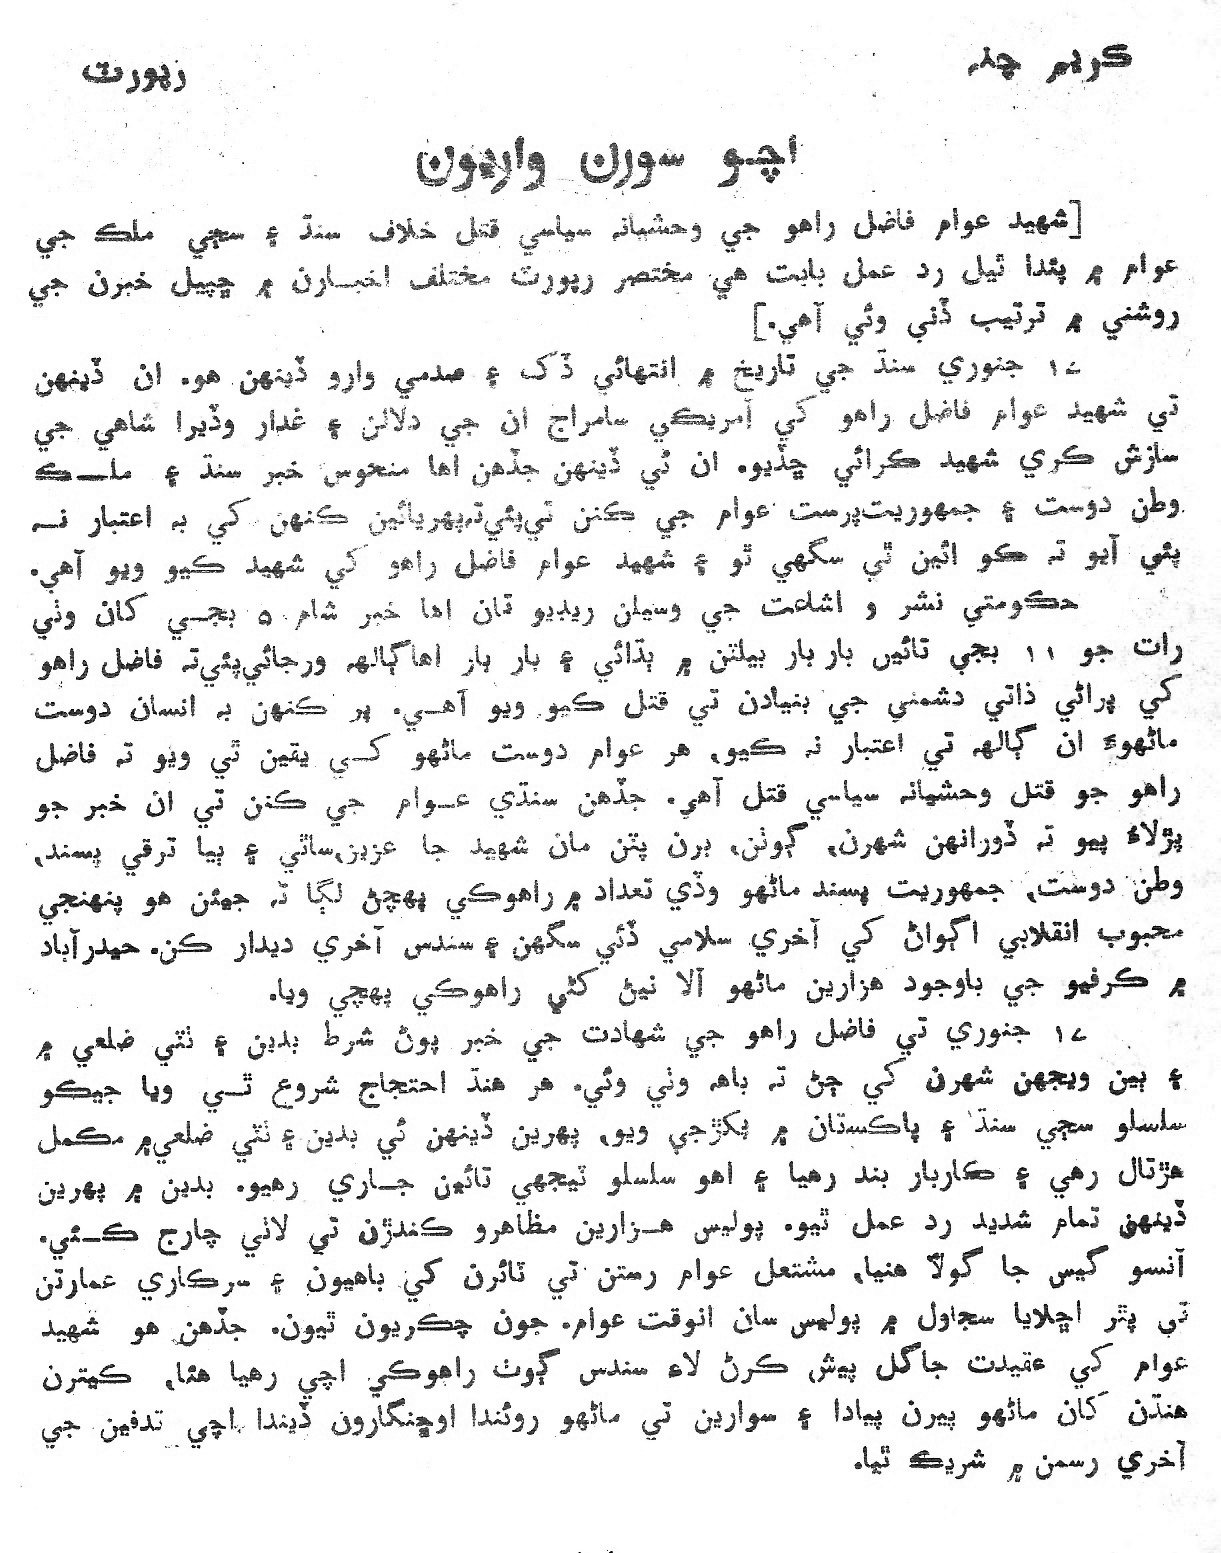 ڪريم چنہ
رپورٽ
اچو سورن واريون
[شهيد عوام فاضل راهو جي وحشيانہ سياسي قتل خلاف سنڌ ۽ سڄي ملڪ جي
عوام ۾ پئدا ٿيل رد عمل بابت هي مختصر رپورٽ مختلف اخبارن ۾ ڇپيل خبرن جي
روشني ۾ ترتيب ڏني وئي آهي.]
۱۷ جنوري سنڌ جي تاريخ ۾ انتهائي ڏک ۽ صدمي وارو ڏينهن هو. ان ڏينهن
تي شهيد عوام فاضل راهو کي آمريڪي سامراج ان جي دلالن ۽ غدار وڏيرا شاهي جي
سازش ڪري شهيد ڪرائي ڇڏيو. ان ئي ڏينهن جڏهن اها منحوس خبر سنڌ ۽ ملڪ
وطن دوست ۽ جمهوريت پرست عوام جي ڪنن تي پئي تہ پهريائين ڪنهن کي بہ اعتبار نہ
پئي آيو تہ ڪو ائين ٿي سگهي ٿو ۽ شهيد عوام فاضل راهو کي شهيد ڪيو ويو آهي.
حڪومتي نشر و اشاعت جي وسيلن ريڊيو تان اها خبر شام ۵ بجي کان وٺي
رات جو ۱۱ بجي تائين بار بار بيلٽن ۾ ٻڌائي ۽ بار بار اها ڳالهہ ورجائي پئي تہ فاضل راهو
کي پراڻي ذاتي دشمني جي بنيادن تي قتل ڪيو ويو آهي. پر ڪنهن بہ انسان دوست
ماڻهوءَ ان ڳالهہ تي اعتبار نہ ڪيو، هر عوام دوست ماڻهو کي يقين ٿي ويو تہ فاضل
راهو جو قتل وحشيانہ سياسي قتل آهي. جڏهن سنڌي عوام جي ڪنن تي ان خبر جو
پڙلاءُ پيو تہ ڏورانهن شهرن، ڳوٺن، برن پٽن مان شهيد جا عزيز، ساٿي ۽ ٻيا ترقي پسند،
وطن دوست، جمهوريت پسند ماڻهو وڏي تعداد ۾ راهوڪي پهچڻ لڳا تہ جيئن هو پنهنجي
محبوب انقلابي اڳواڻ کي آخري سلامي ڏئي سگهن ۽ سندس آخري ديدار ڪن. حيدرآباد
۾ ڪرفيو جي باوجود هزارين ماڻهو آلا نيڻ کڻي راهوڪي پهچي ويا.
۱۷ جنوري تي فاضل راهو جي شهادت جي خبر پوڻ شرط بدين ۽ ٺٽي ضلعي ۾
۽ ٻين ويجهن شهرن کي ڄڻ تہ باهہ وٺي وئي. هر هنڌ احتجاج شروع ٿي ويا جيڪو
سلسلو سڄي سنڌ ۽ پاڪستان ۾ پکڙجي ويو، پهرين ڏينهن ئي بدين ۽ ٺٽي ضلعي ۾ مڪمل
هڙتال رهي ۽ ڪاربار بند رهيا ۽ اهو سلسلو ٽيجهي تائين جاري رهيو. بدين ۾ پهرين
ڏينهن تمام شديد رد عمل ٿيو. پوليس هزارين مظاهرو ڪندڙن تي لاٺي چارج ڪئي.
آنسو گيس جا گولا هنيا، مشتعل عوام رستن تي ٽائرن کي باهيون ۽ سرڪاري عمارتن
تي پٿر اڇلايا سجاول ۾ پوليس سان انوقت عوام. جون چڪريون ٿيون. جڏهن هو شهيد
عوام کي عقيدت جا گل پيش ڪرڻ لاءِ سندس ڳوٺ راهوڪي اچي رهيا هئا، ڪيترن
هنڌن کان ماڻهو پيرن پيادا ۽ سوارين تي ماڻهو روئندا اوڇنگارون ڏيندا اچي تدفين جي
آخري رسمن ۾ شريڪ ٿيا.